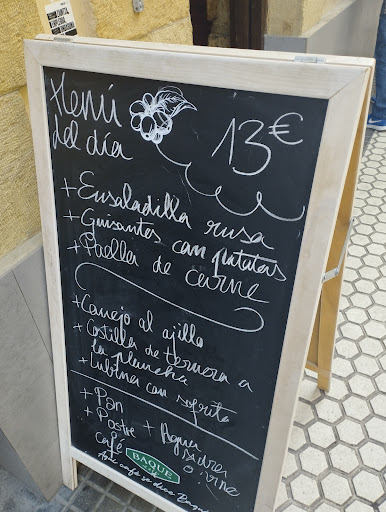 Menú
del día
13€
+ Ensaladilla rusa
+ Guisantes con patatas
+ Paella de carne
+ Conejo al ajillo
+ Costilla de ternera a
la plancha
+ Lubina con sofrito
+ Pan
+ Postre + Agua
café sidra
o vino
BAQUE